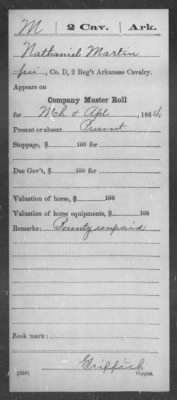 M 2 Cav. Ark.
Nathaniel Martin
Pri, Co. D, 2 Reg't Arkansas Cavalry.
Appears on
Company Muster Roll
for Mch & Apl, 1864.
Present or absent Present
Stoppage, $ 100 for
Due Gov't, $ 100 for
Valuation of horse, $ 100
Valuation of horse equipments, $ 100
Remarks: Bounty unpaid
Book mark:
Griffith
(359) Copyist.